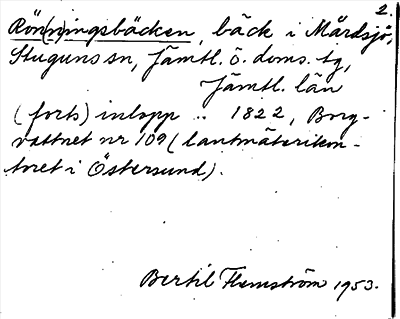 2.
Rön(n)ingsbäcken, bäck i Mårdsjö,
Stuguns sn, Jämtl. ö. doms. tg,
Jämtl. län
(forts) inlopp .. 1822, Borg-
vattnet nr 109 (lantmäterikon-
toret i Östersund).
Bertil Flemström 1953.